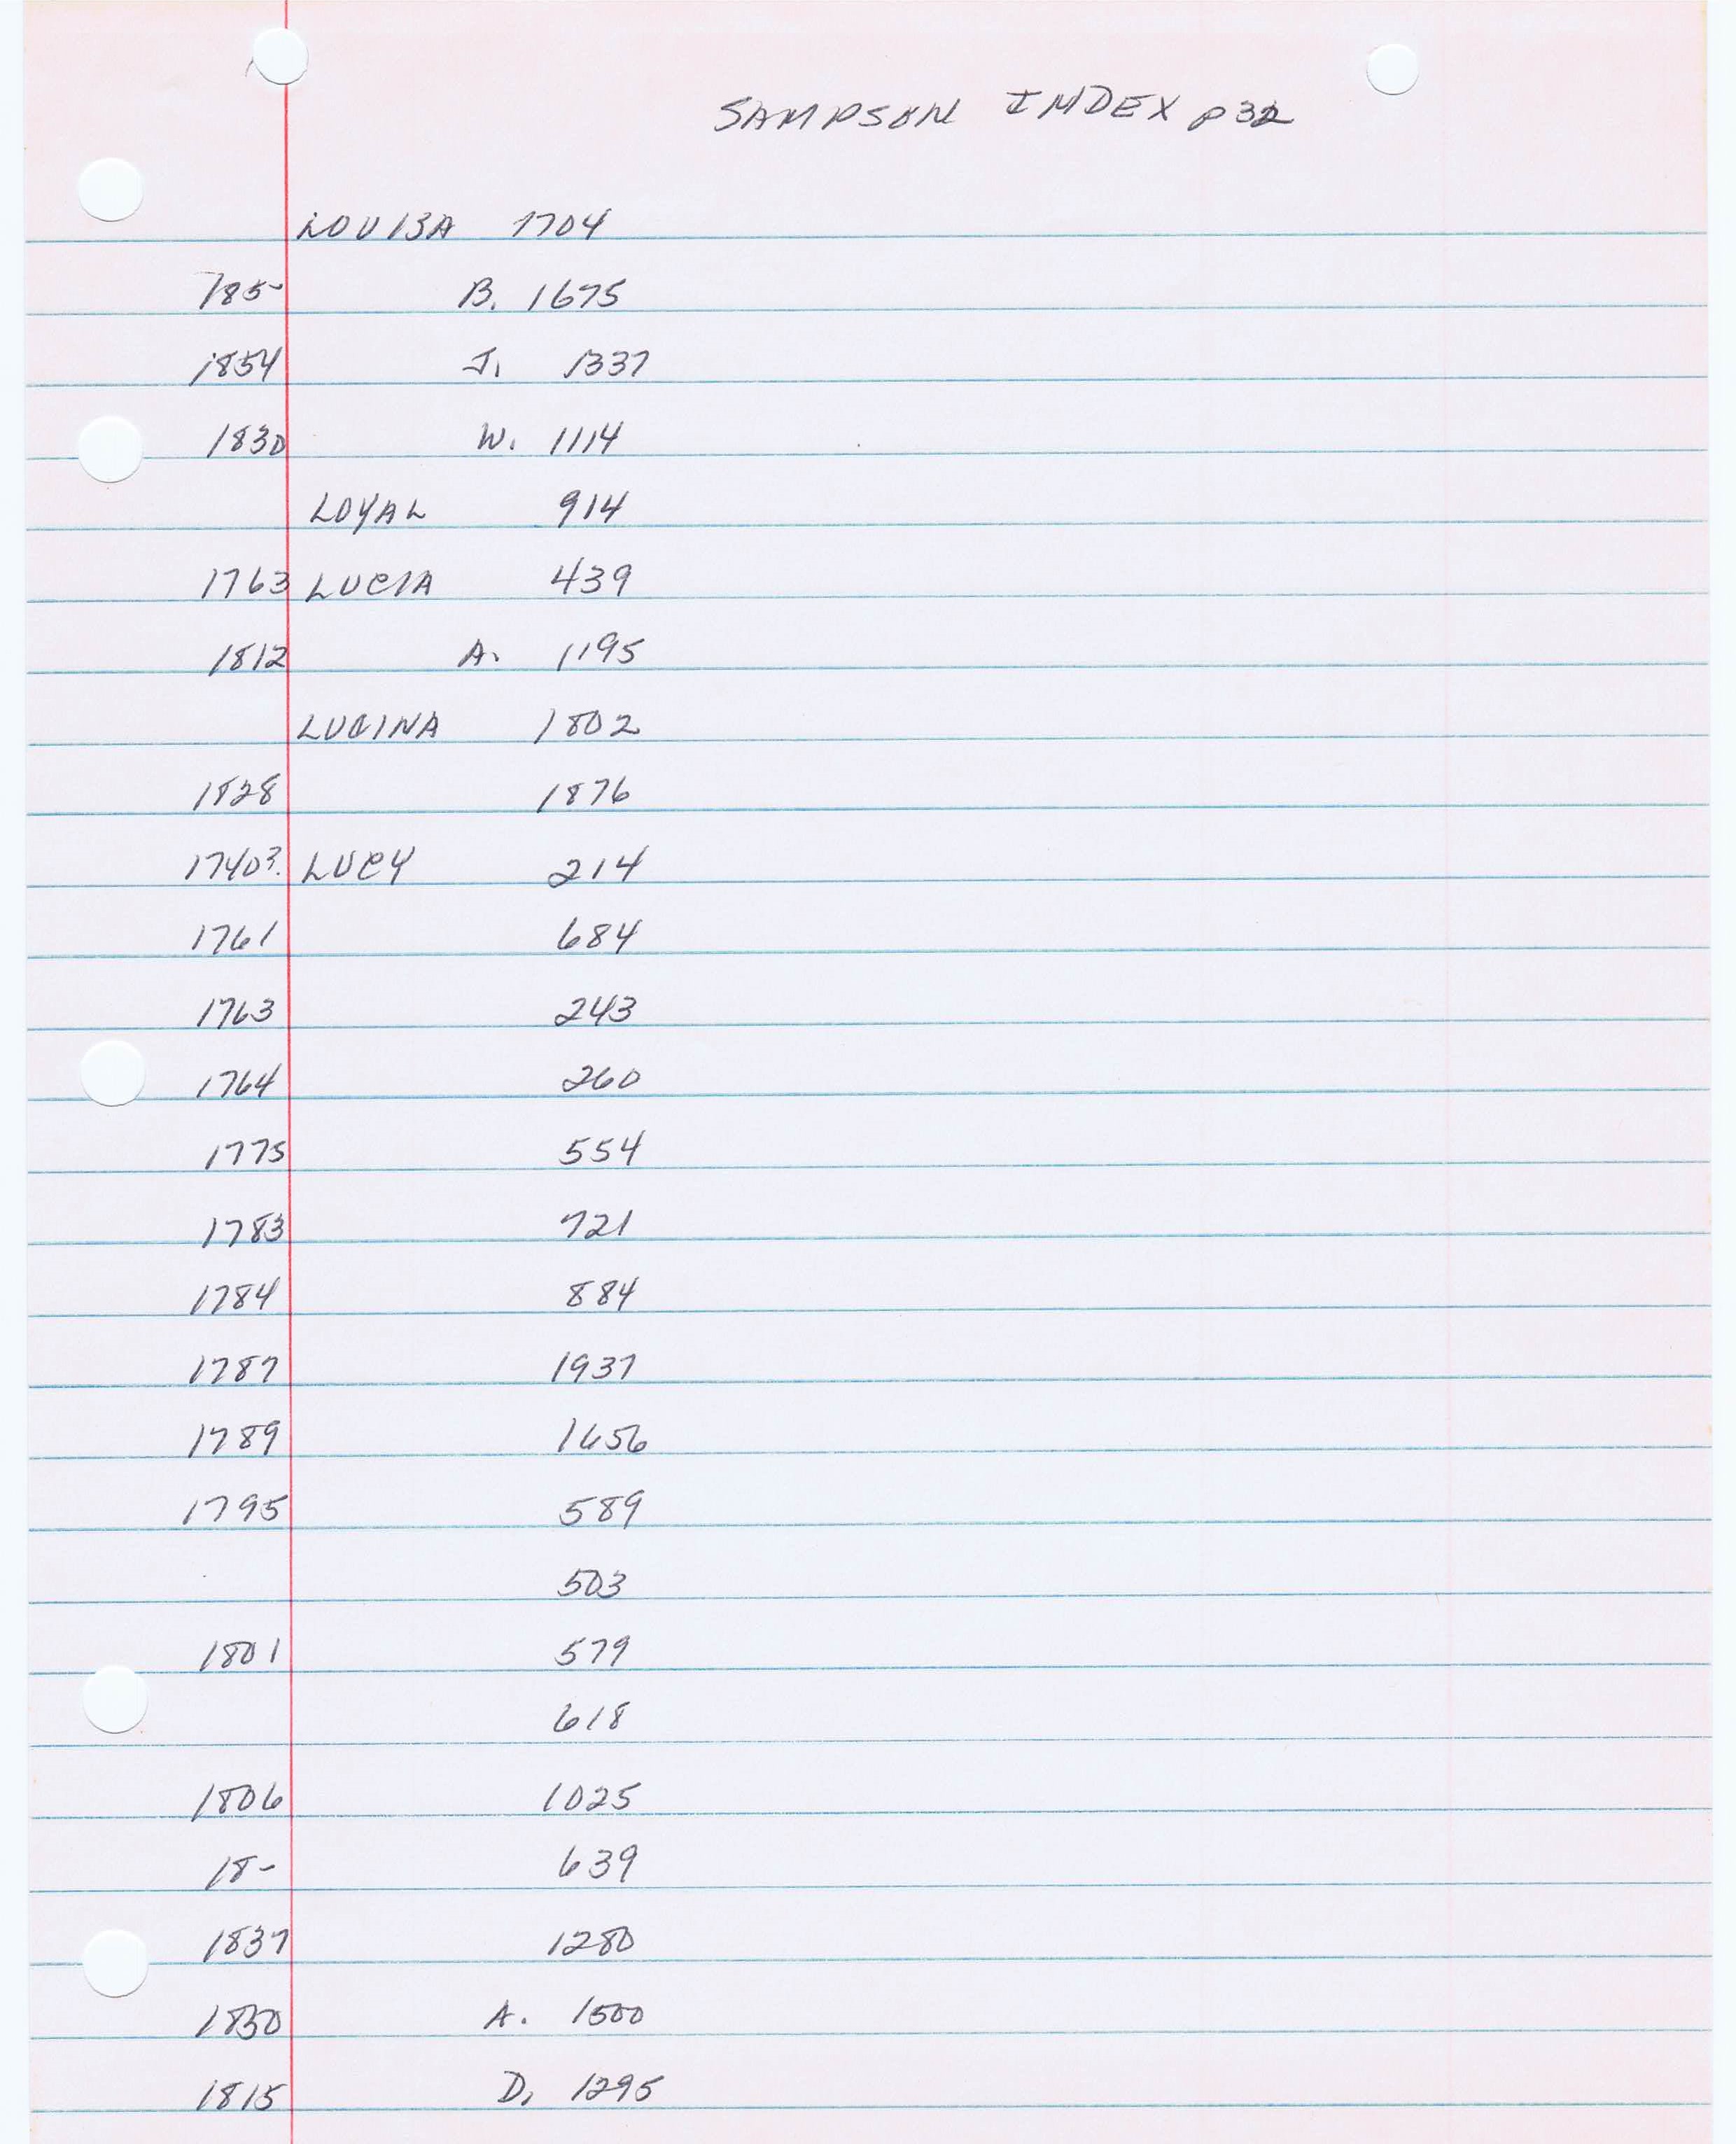 SAMPSON INDEX p 32
LOUISA 1704
185- B. 1675
1854 J. 1337
1830 W. 1114
LOYAL 914
1763 LUCIA 439
1812 A. 1195
LUCINA 1802
1828 1876
1740? LUCY 214
1761 684
1763 243
1764 260
1775 554
1783 721
1784 884
1787 1937
1789 1656
1795 589
503
1801 579
618
1806 1025
18- 639
1837 1280
1830 A. 1500
1815 D. 1295